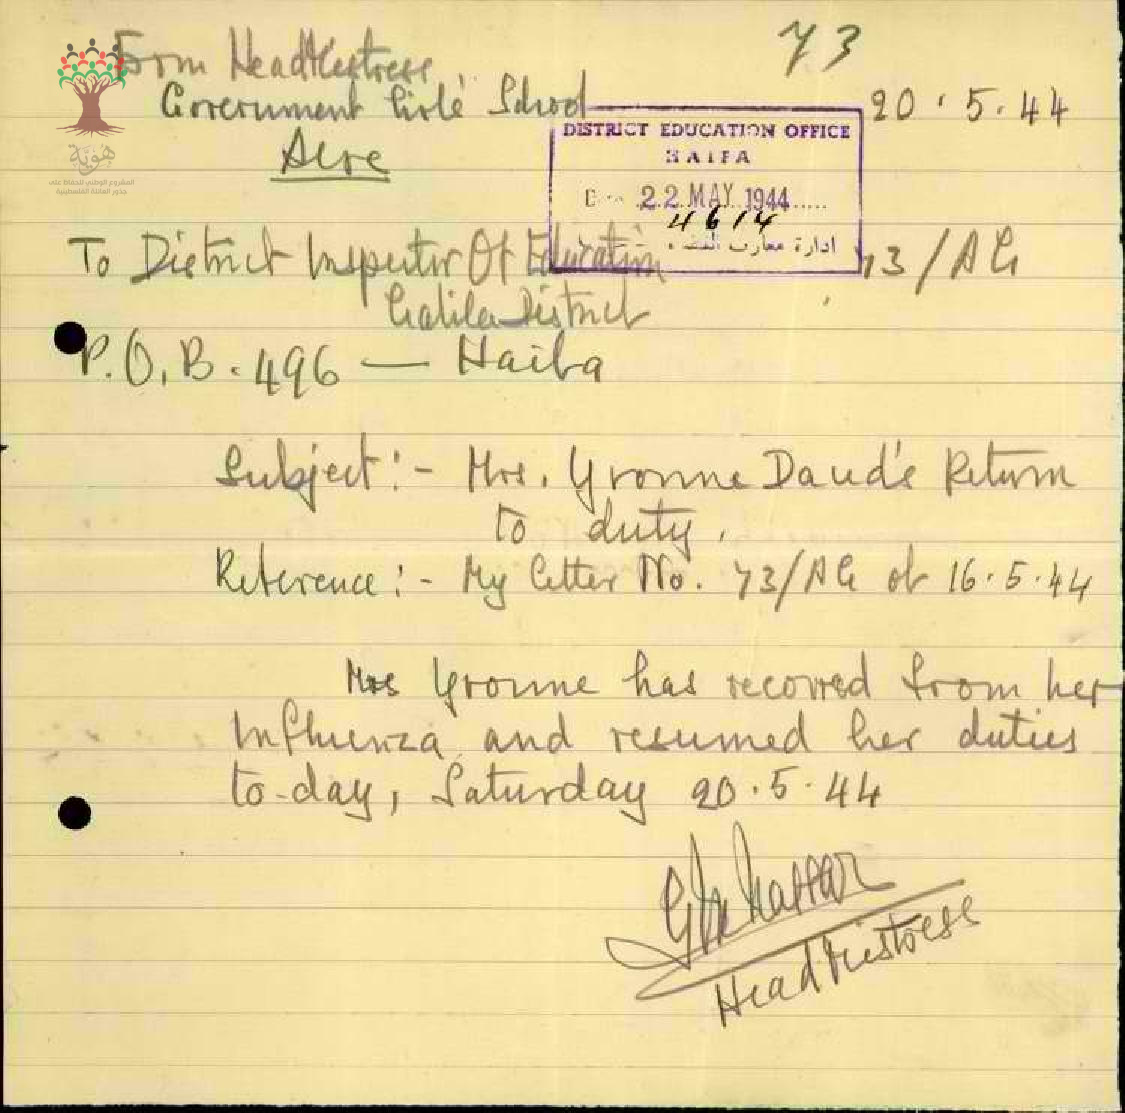 73
From HeadMistress
Government Girls' School
20.5.44
Acre
DISTRICT EDUCATION OFFICE
HAIFA
22 MAY 1944
4614
ادارة معارف
To District Inspector Of Education
73/AG
Galilee District
P.O.B. 496 — Haifa
Subject:- Mrs. Yvonne Daud's Return
to duty.
Reference:- My letter No. 73/AG of 16.5.44
Mrs Yvonne has recovred from her
Influenza and resumed her duties
to-day, Saturday 20.5.44
HeadMistress
هوية
المشروع الوطني للحفاظ على
جذور العائلة الفلسطينية